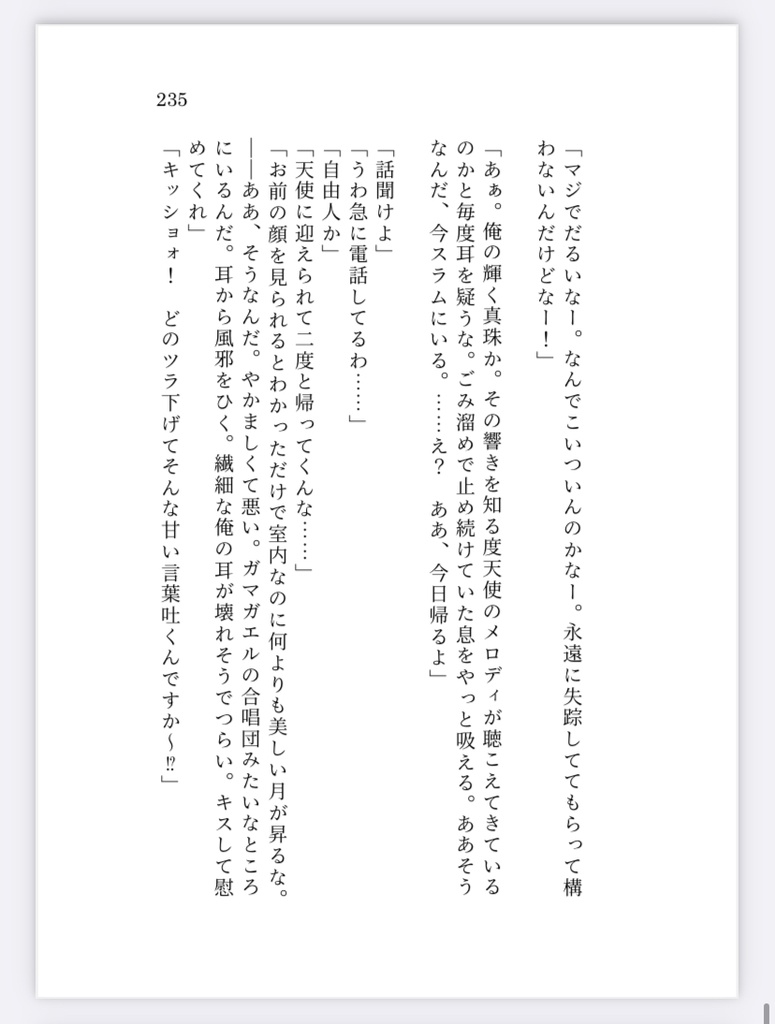 235
「マジでだるいなー。なんでこいついんのかなー。永遠に失踪しててもらって構
わないんだけどなー！」
「あぁ。俺の輝く真珠か。その響きを知る度天使のメロディが聴こえてきている
のかと毎度耳を疑うな。ごみ溜めで止め続けていた息をやっと吸える。ああそう
なんだ、今スラムにいる。……え？　ああ、今日帰るよ」
「話聞けよ」
「うわ急に電話してるわ……」
「自由人か」
「天使に迎えられて二度と帰ってくんな……」
「お前の顔を見られるとわかっただけで室内なのに何よりも美しい月が昇るな。
――ああ、そうなんだ。やかましくて悪い。ガマガエルの合唱団みたいなところ
にいるんだ。耳から風邪をひく。繊細な俺の耳が壊れそうでつらい。キスして慰
めてくれ」
「キッショォ！　どのツラ下げてそんな甘い言葉吐くんですか～⁉」